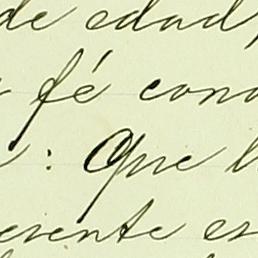 de edad,
fé cono
: Que l
esente es